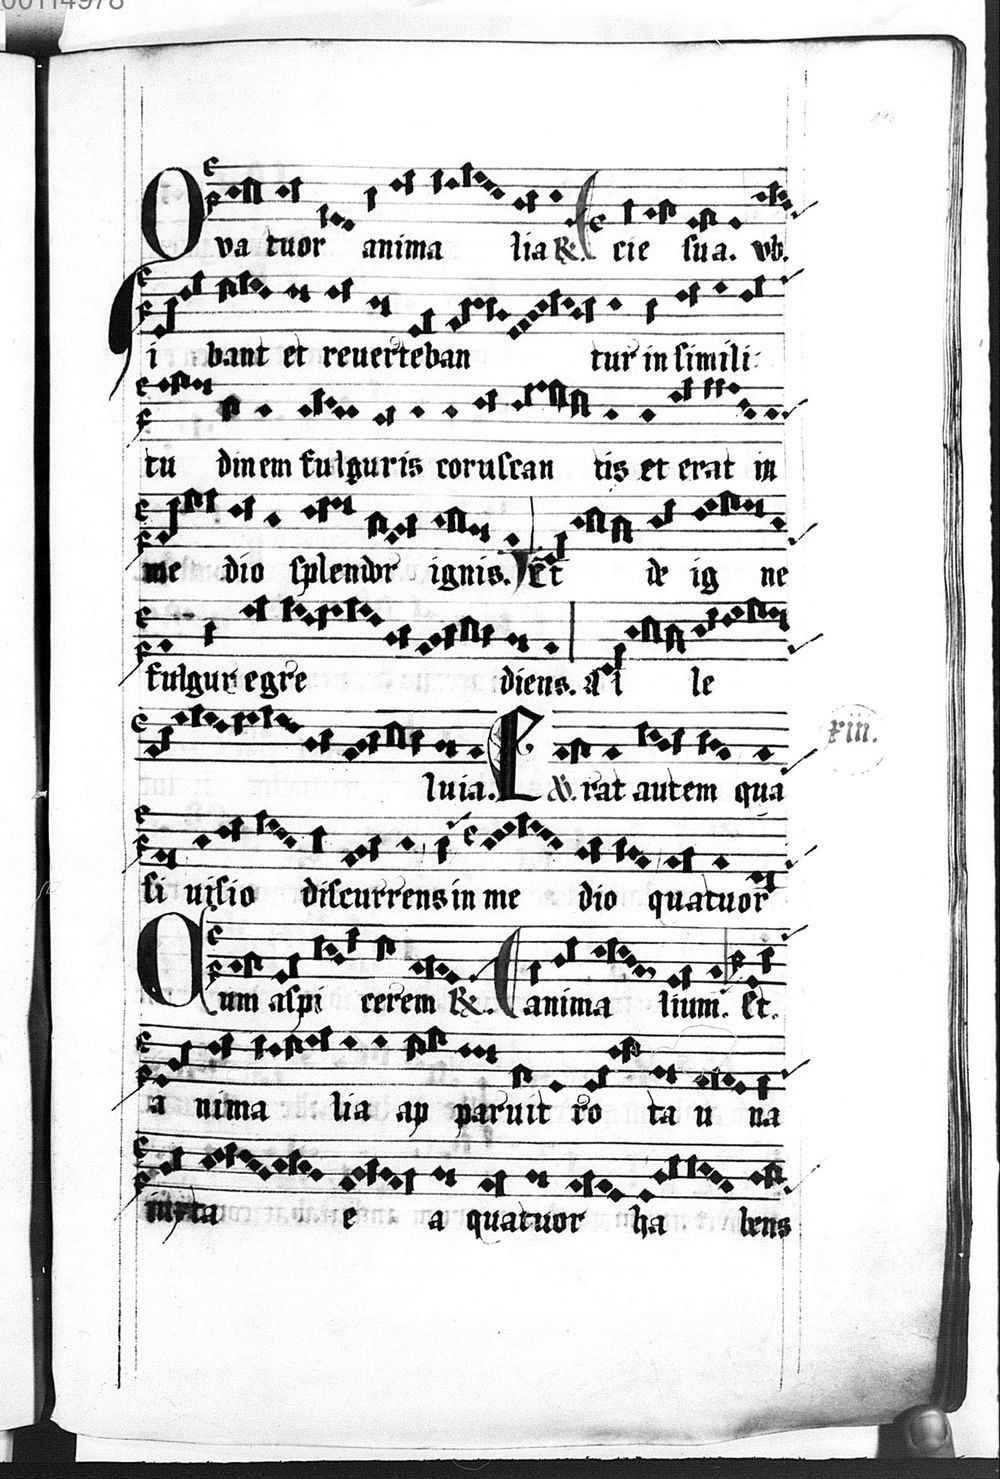 00114978
Qva tuor anima lia ℟. cie sua. vb.
i bant et reuerteban tur in simili
tu dinem fulguris coruscan tis et erat in
me dio splendor ignis. et de ig ne
fulgur egre diens. Al le
luia. E ℣. rat autem qua
si uisio discurrens in me dio quatuor
xiii.
Cum aspi cerem ℟. anima lium. Et.
a nima lia ap paruit ro ta u na
iuxta e a quatuor ha bens